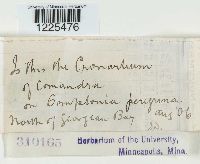 University of Minnesota
1225476
Is this the Cronartium
of Comandra
on Comptonia peregrina
North of Georgian Bay Aug 06
310165 Herbarium of the University,
Minneapolis, Minn.